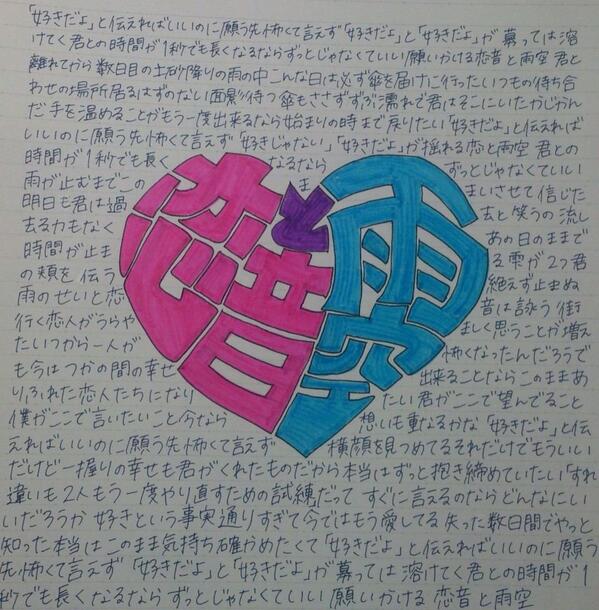 「好きだよ」と伝えればいいのに願う先怖くて言えず「好きだよ」と「好きだよ」が募っては溶
けてく君との時間が1秒でも長くなるならずっとじゃなくていい願いかける恋音と雨空君と
離れてから数日目の土砂降りの雨の中こんな日は必ず傘を届けに行ったいつもの待ち合
わせの場所居るはずのない面影待つ傘もささずずぶ濡れで君はそこにいたかじかん
だ手を温めることがもう一度出来るなら始まりの時まで戻りたい「好きだよ」と伝えれば
いいのに願う先怖くて言えず「好きじゃない」「好きだ」が揺れる恋と雨空君との
時間が1秒でも長く なるなら ずっとじゃなくていい
雨が止むまでこの ま まいさせて信じた
明日も君は過 去と笑うの流し
去る力もなく あの日のままで
時間が止ま る雫が2つ君
の頬を伝う 絶えず止まぬ
雨のせいと恋 音は詠う街
行く恋人がうらや ましく思うことが増え
たいつから一人が 怖くなったんだろうで
も今はつかの間の幸せ 出来ることならこのままあ
りふれた恋人たちになり たい君がここで望んでること
僕がここで言いたいこと今なら 想いも重なるかな「好きだよ」と伝
えればいいのに願う先怖くて言えず 横顔を見つめてるそれだけでもういい
だけど一握りの幸せも君がくれたものだから本当はずっと抱き締めていたい「すれ
違いも2人もう一度やり直すための試練」だって すぐに言えるのならどんなにい
いだろうか好きという事実通りすぎて今ではもう愛してる失った数日間でやっと
知った本当はこのまま気持ち確かめたくて「好きだよ」と伝えればいいのに願う
先怖くて言えず「好きだよ」と「好きだよ」が募っては溶けてく君との時間が1
秒でも長くなるならずっとじゃなくていい願いかける恋音と雨空
恋音と雨空